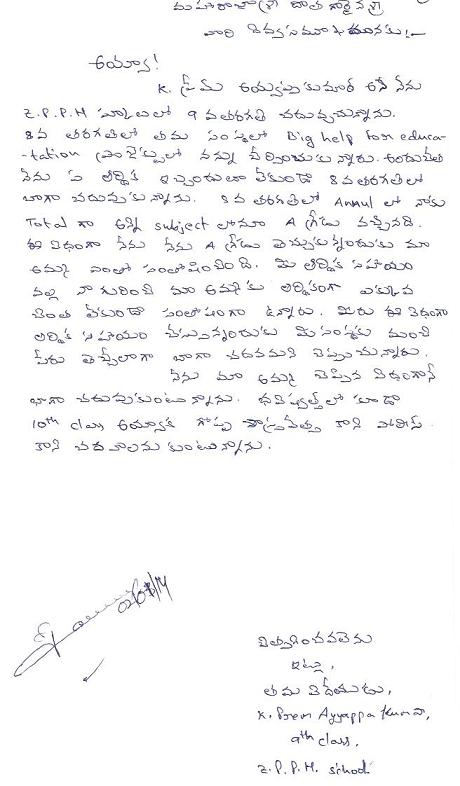 మహారాజశ్రీ దాత గారైన
వారి దివ్యసముఖమునకు!—
అయ్యా!
K. ప్రేమ్ అయ్యప్పకుమార్ అనే నేను
Z.P.P.H స్కూలులో 9వ తరగతి చదువుచున్నాను.
8వ తరగతిలో తమ సంస్థలో Big help for educa-
-tation ప్రాజెక్టులో నన్ను చేర్పించుకున్నారు. అందుచేత
నేను ఏ ఆర్థిక ఇబ్బందులు లేకుండా 8వ తరగతిలో
బాగా చదువుకున్నాను. 8వ తరగతిలో Annul లో నాకు
Total గా అన్ని subject లోనూ A గ్రేడు వచ్చినది.
ఈ విధంగా నేను నేను A గ్రేడు తెచ్చుకున్నందుకు మా
అమ్మ ఎంతో సంతోషించింది. మీ ఆర్థిక సహాయం
వల్ల నా గురించి మా అమ్మకు ఆర్థికంగా ఎక్కువ
చింత లేకుండా సంతోషంగా ఉన్నారు. మీరు ఈ విధంగా
ఆర్థిక సహాయం చేస్తున్నందుకు మీ సంస్థకు మంచి
పేరు తెచ్చేలాగా బాగా చదవమని చెప్పుచున్నారు.
నేను మా అమ్మ చెప్పిన విధంగానే
బాగా చదువుకుంటున్నాను. భవిష్యత్ లో కూడా
10th class అయ్యాక గొప్ప శాస్త్రవేత్త కాని పోలీస్
కాని చదవాలనుకుంటున్నాను.
చిత్తగించవలెను
ఇట్లు,
తమ విదేయుడు,
K. Prem Ayyappa Kumar,
9th class,
Z.P.P.H. school